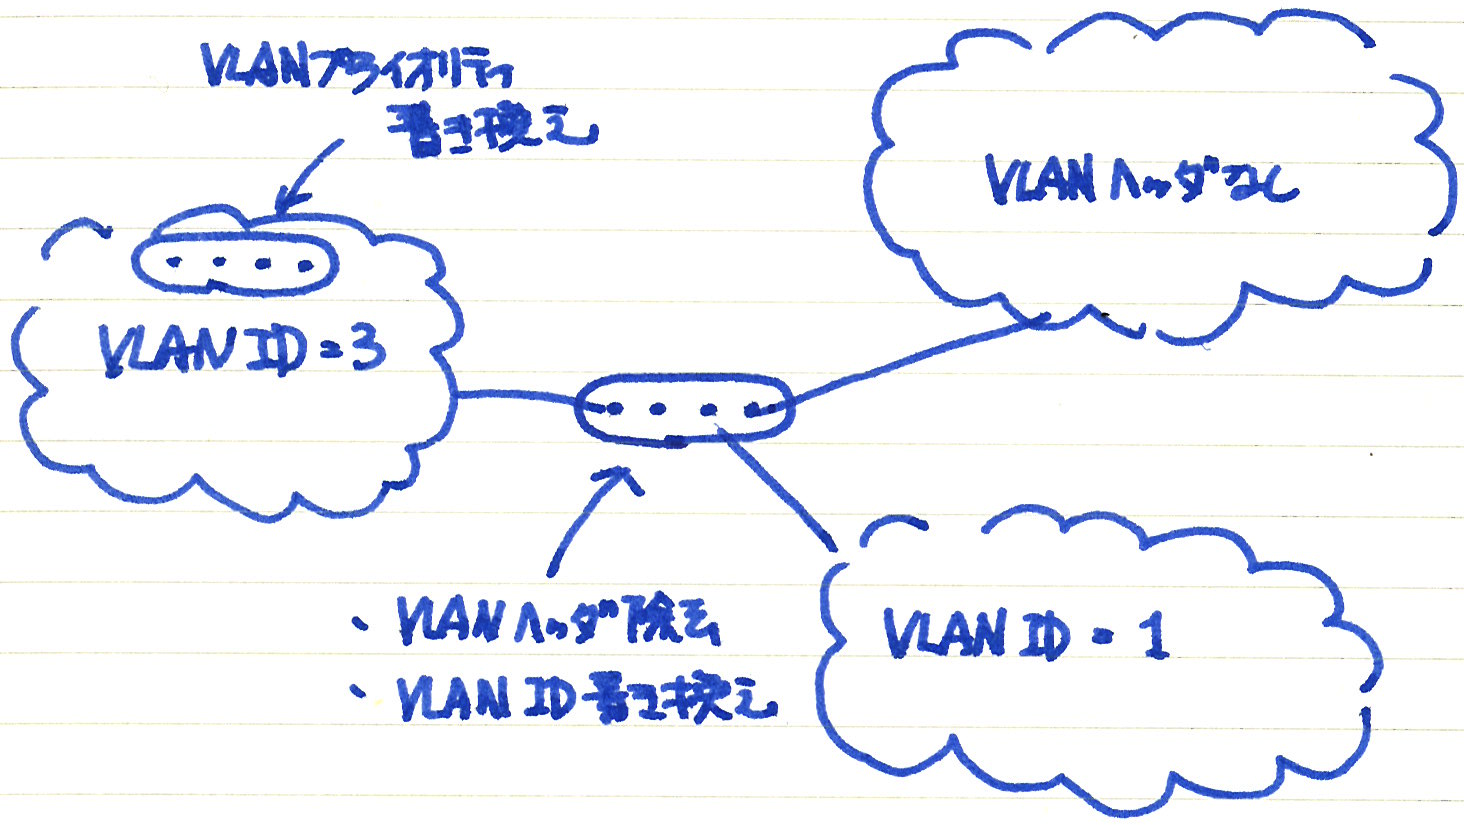 VLANプライオリティ
書き換え
VLANヘッダなし
VLAN ID = 3
・VLANヘッダ除去
・VLAN ID書き換え
VLAN ID = 1